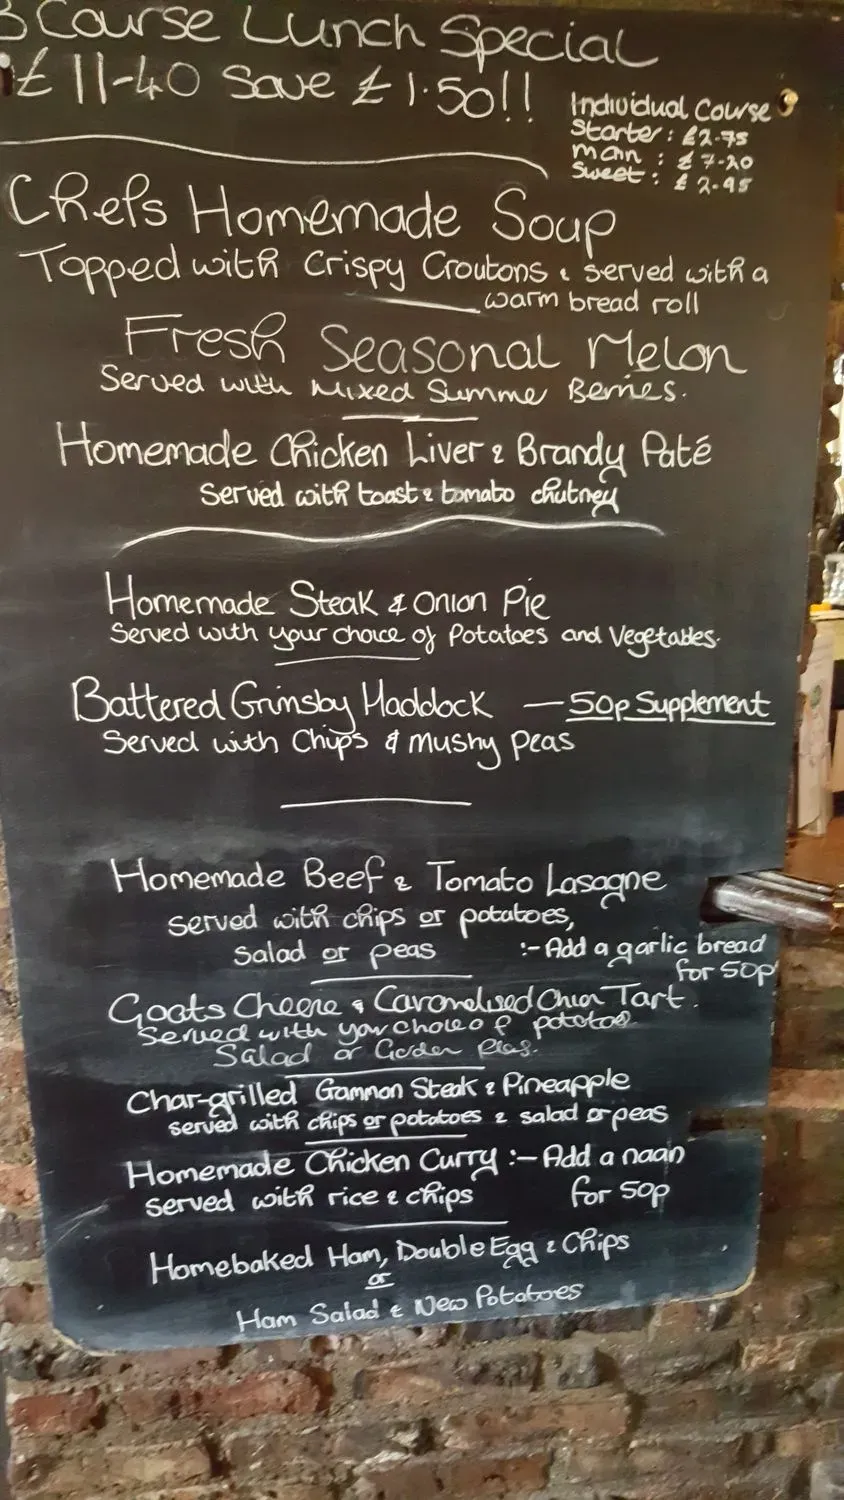 3 Course Lunch Special
£11-40 Save £1.50!!
Individual Course
Starter: £2.75
Main : £7-20
Sweet: £2.95
Chefs Homemade Soup
Topped with Crispy Croutons & served with a
warm bread roll
Fresh Seasonal Melon
Served with Mixed Summe Berries.
Homemade Chicken Liver & Brandy Paté
Served with toast & tomato chutney
Homemade Steak & Onion Pie
Served with your choice of Potatoes and Vegetables.
Battered Grimsby Haddock — 50p Supplement
Served with Chips & Mushy Peas
Homemade Beef & Tomato Lasagne
served with chips or potatoes,
Salad or peas :- Add a garlic bread
for 50p
Goats Cheese & Caramelised Onion Tart.
Served with your choice of potatoe
Salad or Garden Peas.
Char-grilled Gammon Steak & Pineapple
served with chips or potatoes & salad or peas
Homemade Chicken Curry :- Add a naan
served with rice & chips for 50p
Homebaked Ham, Double Egg & Chips
or
Ham Salad & New Potatoes